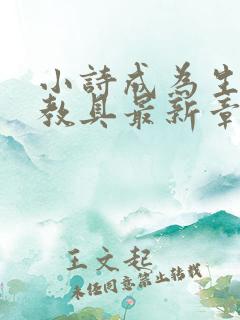 小詩成為生
教具最新章
王文起
未经同意禁止转载